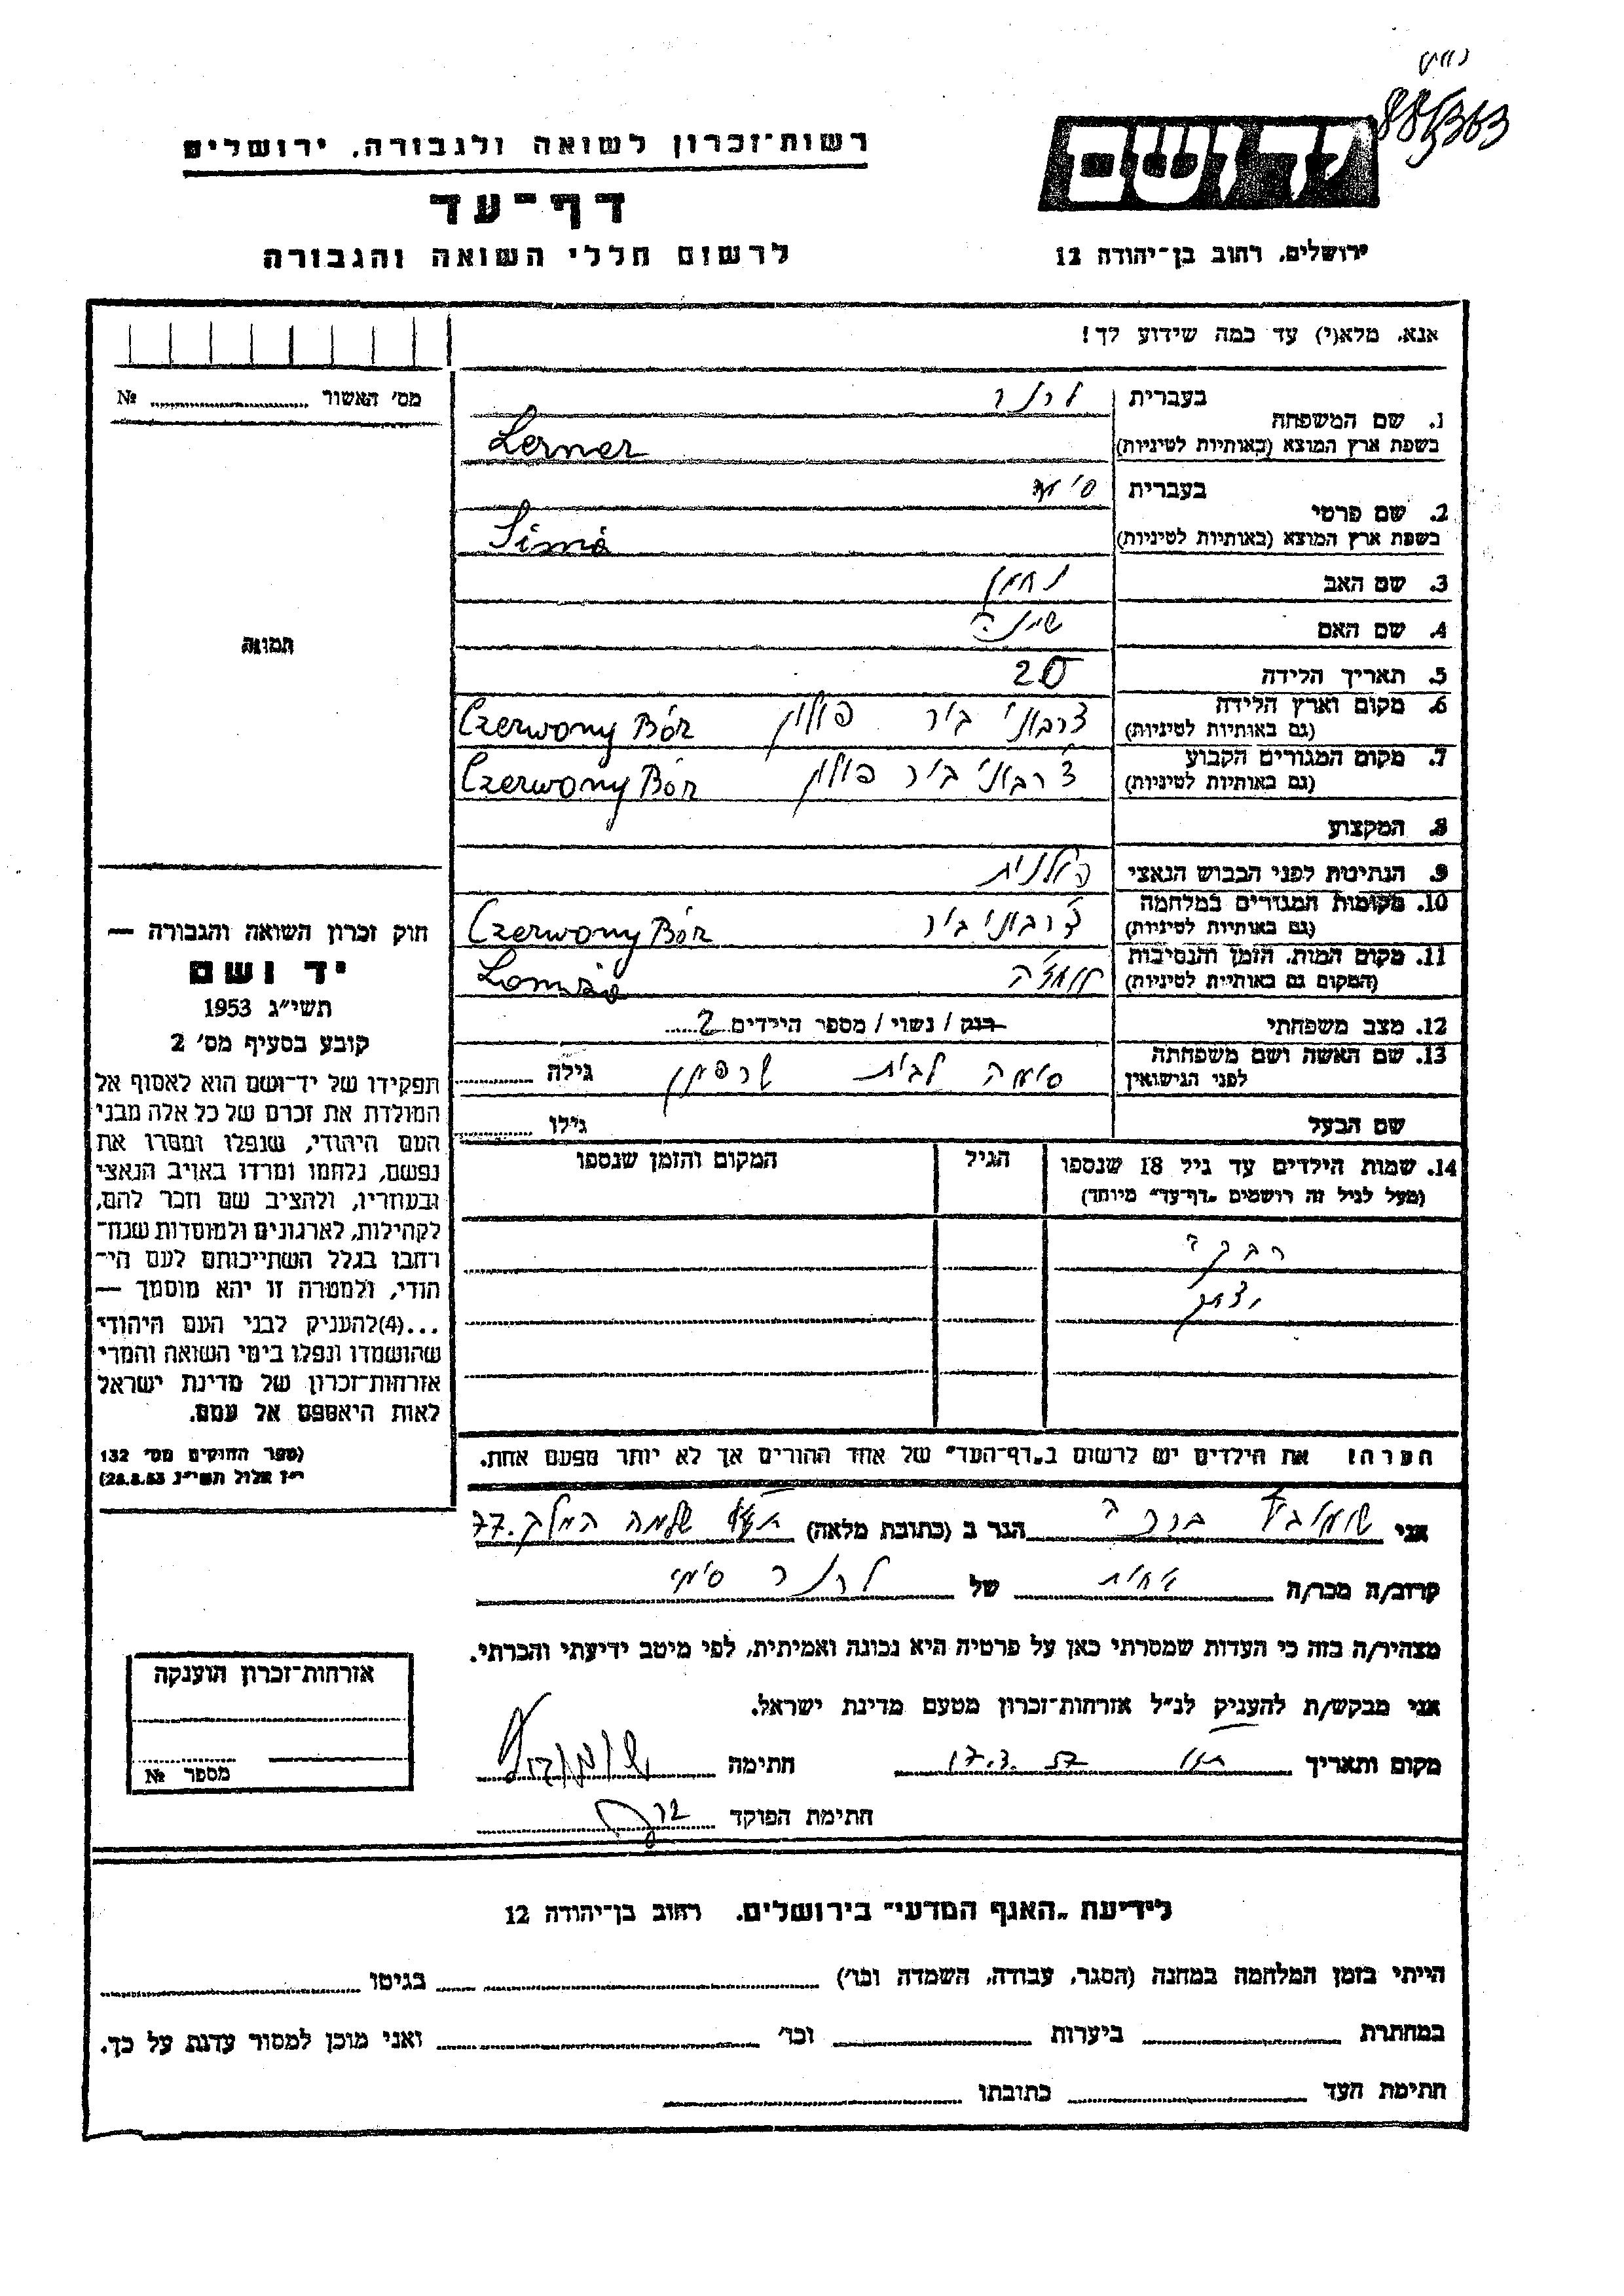 רשות־זכרון לשואה ולגבורה, ירושלים
דף־עד
לרשום חללי השואה והגבורה
יד ושם
ירושלים, רחוב בן־יהודה 12
אנא, מלא(י) עד כמה שידוע לך!
מס' האשור № ........
1. שם המשפחה
בעברית לרנר
בשפת ארץ המוצא (באותיות לטיניות) Lerner
2. שם פרטי
בעברית סימה
בשפת ארץ המוצא (באותיות לטיניות) Sima
3. שם האב נחמן
4. שם האם שיינה
5. תאריך הלידה 20
6. מקום וארץ הלידה
(גם באותיות לטיניות) צ'רבוני בור פולין Czerwony Bór
7. מקום המגורים הקבוע
(גם באותיות לטיניות) צ'רבוני בור פולין Czerwony Bór
8. המקצוע
9. הנתינות לפני הכבוש הנאצי פולנית
10. מקומות המגורים במלחמה
(גם באותיות לטיניות) צ'רבוני בור Czerwony Bór
11. מקום המות, הזמן והנסיבות
(המקום גם באותיות לטיניות) לומז'ה Lomża
12. מצב משפחתי רווק / נשוי / מספר הילדים 2
13. שם האשה ושם משפחתה
לפני הנישואין סימה לבית שרפמן גילה ........
שם הבעל גילו ........
14. שמות הילדים עד גיל 18 שנספו
(מעל לגיל זה רושמים "דף־עד" מיוחד)
הגיל
המקום והזמן שנספו
רבקה
יצחק
הערה! את הילדים יש לרשום ב"דף־העד" של אחד ההורים אך לא יותר מפעם אחת.
תמונה
חוק זכרון השואה והגבורה —
יד ושם
תשי"ג 1953
קובע בסעיף מס' 2
תפקידו של יד־ושם הוא לאסוף אל
המולדת את זכרם של כל אלה מבני
העם היהודי, שנפלו ומסרו את
נפשם, נלחמו ומרדו באויב הנאצי
ובעוזריו, ולהציב שם וזכר להם,
לקהילות, לארגונים ולמוסדות שנח־
רבו בגלל השתייכותם לעם הי־
הודי, ולמטרה זו יהא מוסמך —
...(4)להעניק לבני העם היהודי
שהושמדו ונפלו בימי השואה והמרי
אזרחות־זכרון של מדינת ישראל
לאות היאספם אל עמם.
(ספר החוקים מס' 132
י"ז אלול תשי"ג 28.8.53)
אני ברכה הגר ב (כתובת מלאה) שלמה המלך 77.
קרוב/ה מכר/ה אחות של לרנר סימה
מצהיר/ה בזה כי העדות שמסרתי כאן על פרטיה היא נכונה ואמיתית, לפי מיטב ידיעתי והכרתי.
אני מבקש/ת להעניק לנ"ל אזרחות־זכרון מטעם מדינת ישראל.
מקום ותאריך 17.3.57 חתימה
חתימת הפוקד
אזרחות־זכרון הוענקה
מספר №
לידיעת "האגף המדעי" בירושלים, רחוב בן־יהודה 12
הייתי בזמן המלחמה במחנה (הסגר, עבודה, השמדה וכו') ........ בגיטו ........
במחתרת ........ ביערות ........ וכו' ........ ואני מוכן למסור עדות על כך.
חתימת העד ........ כתובתו ........